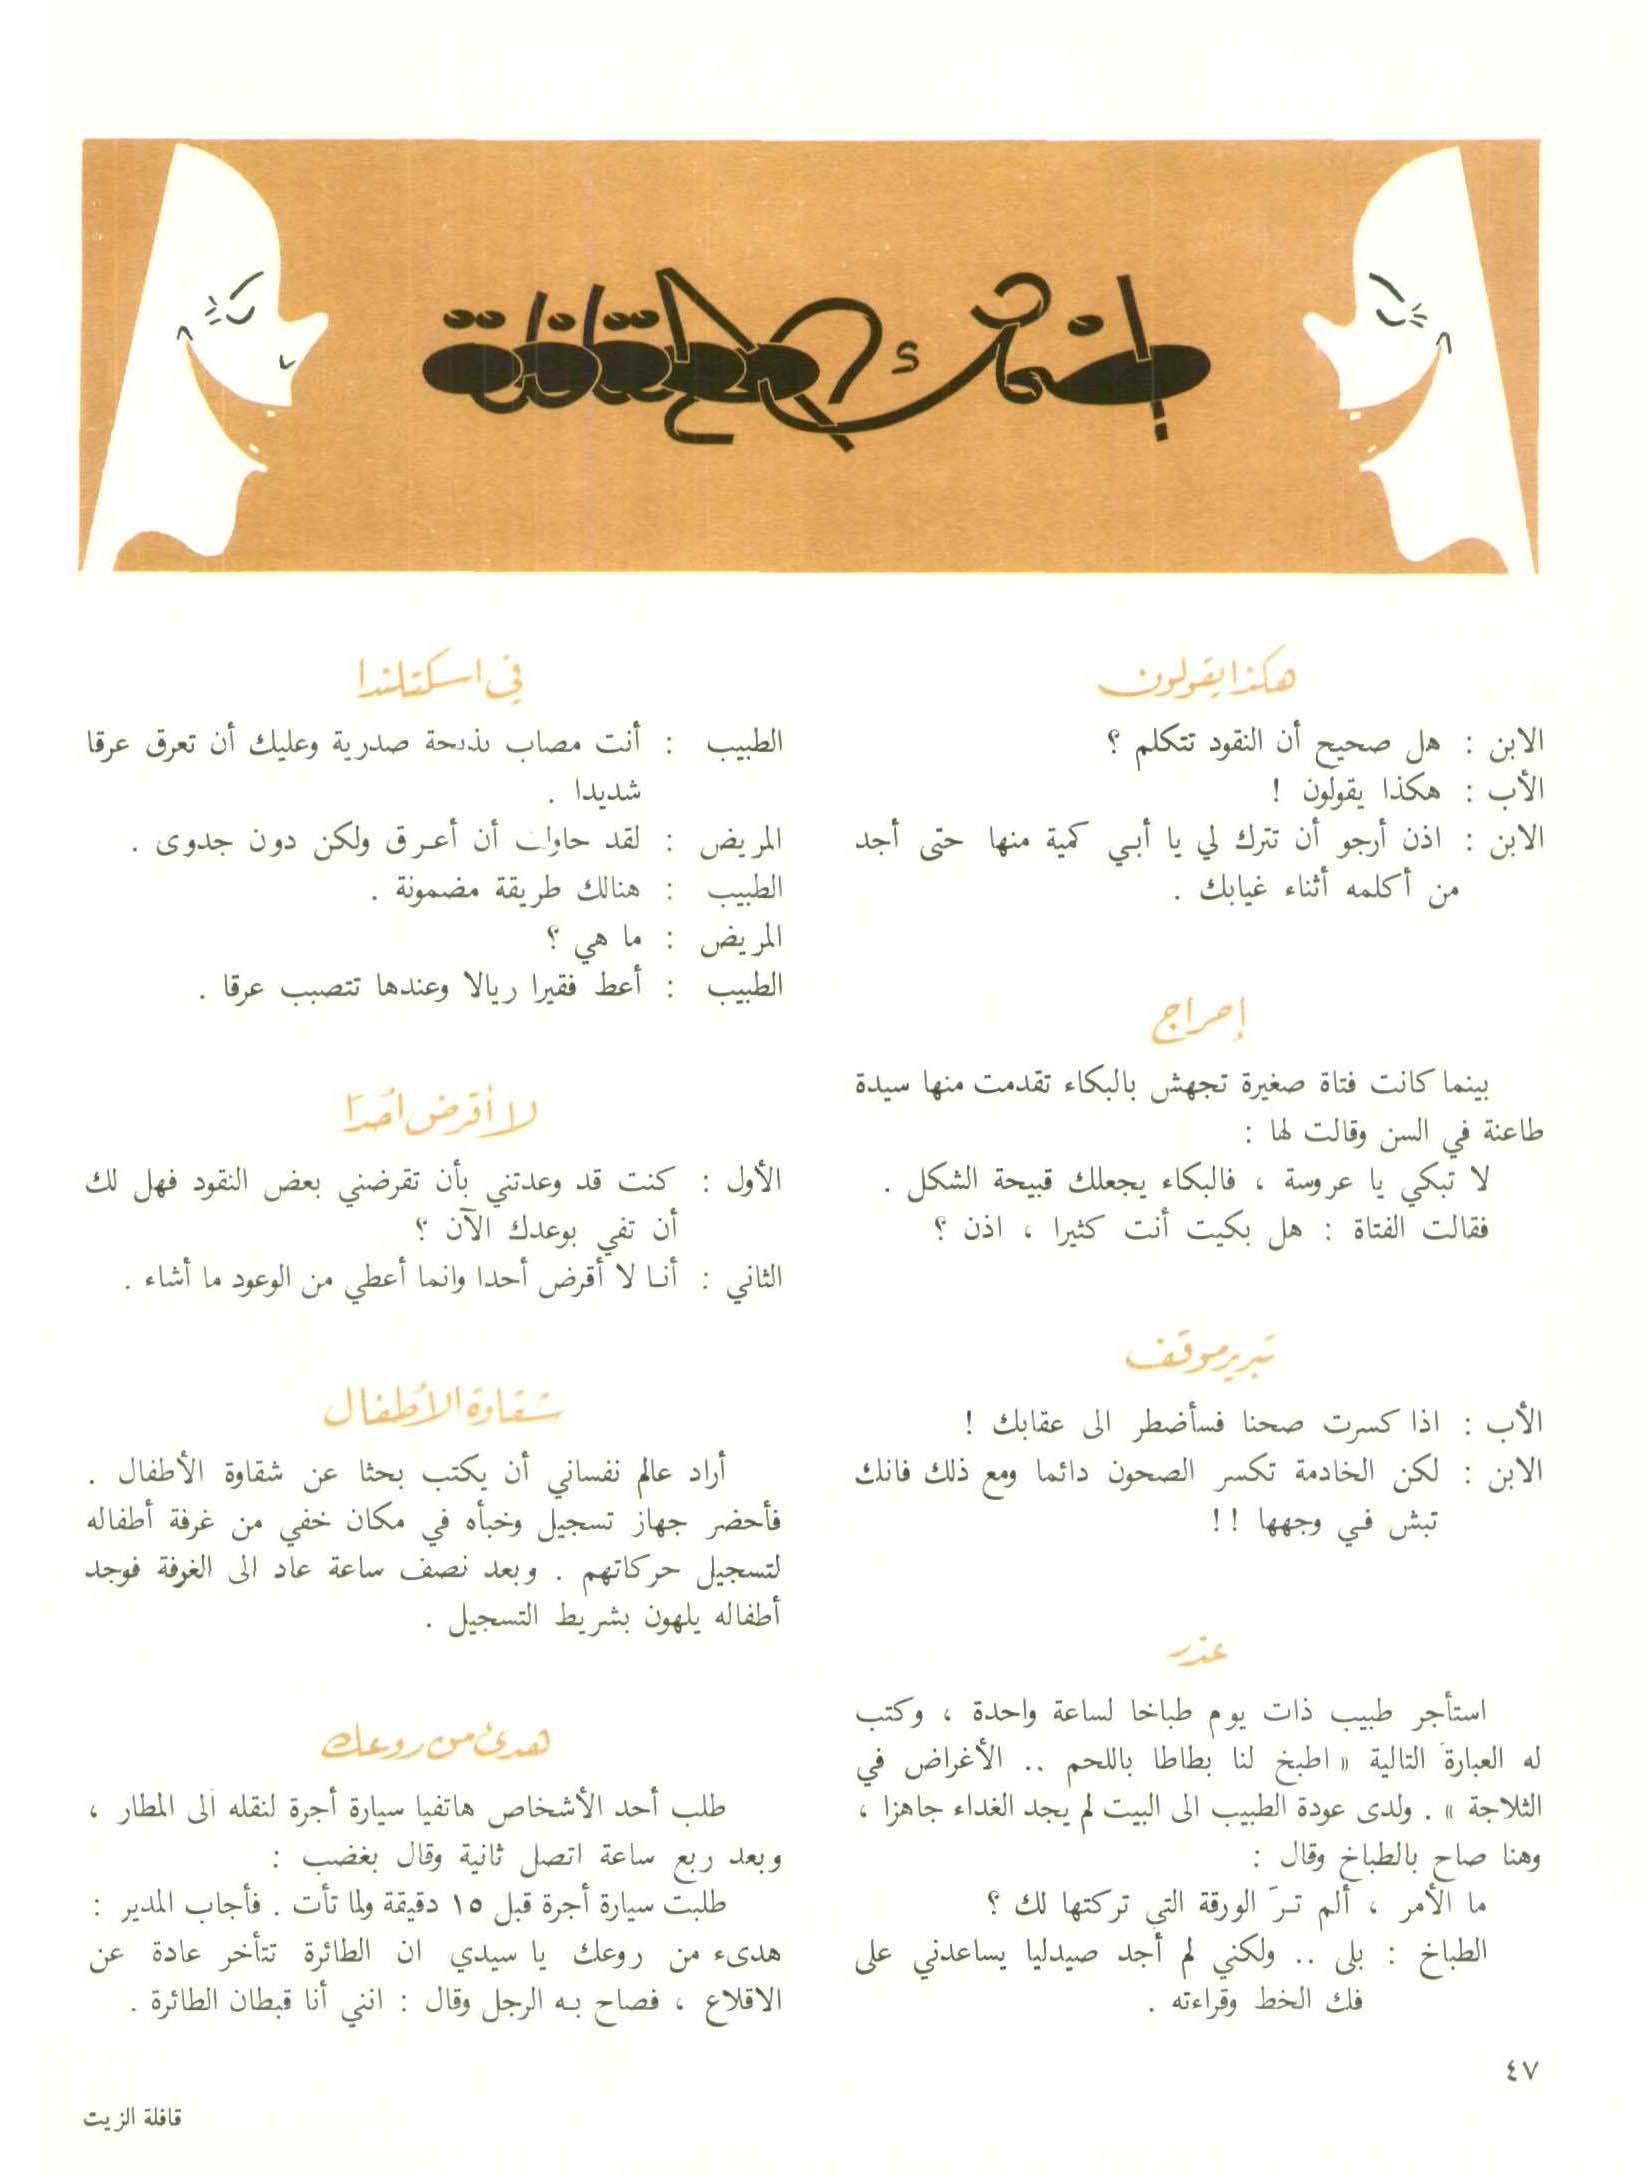 إضحك مع القافلة
هكذا يقولون
الابن : هل صحيح أن النقود تتكلم ؟
الأب : هكذا يقولون !
الابن : اذن أرجو أن تترك لي يا أبي كمية منها حتى أجد
من أكلمه أثناء غيابك .
إحراج
بينما كانت فتاة صغيرة تجهش بالبكاء تقدمت منها سيدة
طاعنة في السن وقالت لها :
لا تبكي يا عروسة ، فالبكاء يجعلك قبيحة الشكل .
فقالت الفتاة : هل بكيت أنت كثيرا ، اذن ؟
تبرير موقف
الأب : اذا كسرت صحنا فسأضطر الى عقابك !
الابن : لكن الخادمة تكسر الصحون دائما ومع ذلك فانك
تبش في وجهها !!
عذر
استأجر طبيب ذات يوم طباخا لساعة واحدة ، وكتب
له العبارة التالية « اطبخ لنا بطاطا باللحم .. الأغراض في
الثلاجة » . ولدى عودة الطبيب الى البيت لم يجد الغداء جاهزا ،
وهنا صاح بالطباخ وقال :
ما الأمر ، ألم ترَ الورقة التي تركتها لك ؟
الطباخ : بلى .. ولكني لم أجد صيدليا يساعدني على
فك الخط وقراءته .
في اسكتلندا
الطبيب : أنت مصاب بذبحة صدرية وعليك أن تعرق عرقا
شديدا .
المريض : لقد حاولت أن أعرق ولكن دون جدوى .
الطبيب : هنالك طريقة مضمونة .
المريض : ما هي ؟
الطبيب : أعط فقيرا ريالا وعندها تتصبب عرقا .
لا أقرض أحدًا
الأول : كنت قد وعدتني بأن تقرضني بعض النقود فهل لك
أن تفي بوعدك الآن ؟
الثاني : أنا لا أقرض أحدا وانما أعطي من الوعود ما أشاء .
شقاوة الأطفال
أراد عالم نفساني أن يكتب بحثا عن شقاوة الأطفال .
فأحضر جهاز تسجيل وخبأه في مكان خفي من غرفة أطفاله
لتسجيل حركاتهم . وبعد نصف ساعة عاد الى الغرفة فوجد
أطفاله يلهون بشريط التسجيل .
هدئ من روعك
طلب أحد الأشخاص هاتفيا سيارة أجرة لنقله الى المطار ،
وبعد ربع ساعة اتصل ثانية وقال بغضب :
طلبت سيارة أجرة قبل ١٥ دقيقة ولما تأت . فأجاب المدير :
هدىء من روعك يا سيدي ان الطائرة تتأخر عادة عن
الاقلاع ، فصاح به الرجل وقال : انني أنا قبطان الطائرة .
٤٧
قافلة الزيت